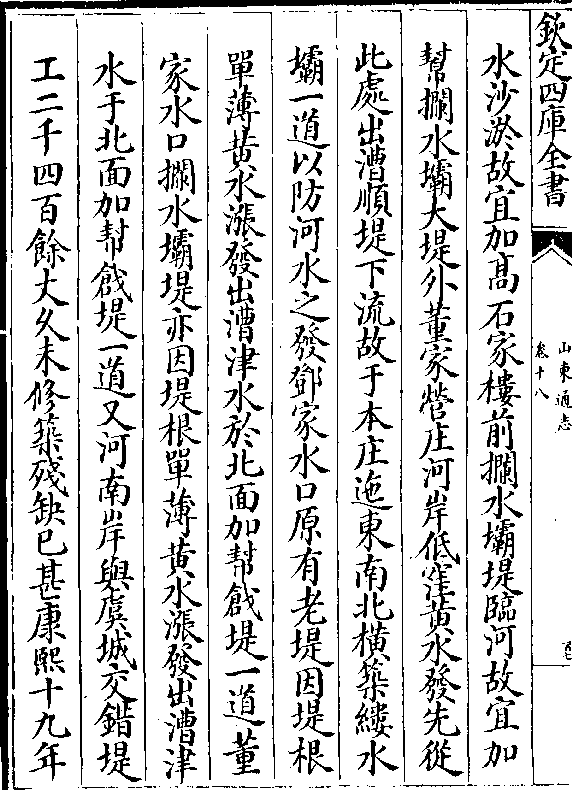 欽定四庫全書
山東通志
卷十八
水沙淤故宜加高石家樓前攔水壩堤臨河故宜加
幫攔水壩大堤外董家營庄河岸低窪黃水發先從
此處出漕順堤下流故于本庄迤東南北橫築縷水
壩一道以防河水之發鄧家水口原有老堤因堤根
單薄黃水漲發出漕津水於北面加幫戧堤一道董
家水口攔水壩堤亦因堤根單薄黃水漲發出漕津
水于北面加幫戧堤一道又河南岸與虞城交錯堤
工二千四百餘丈久未修築殘缺已甚康熙十九年